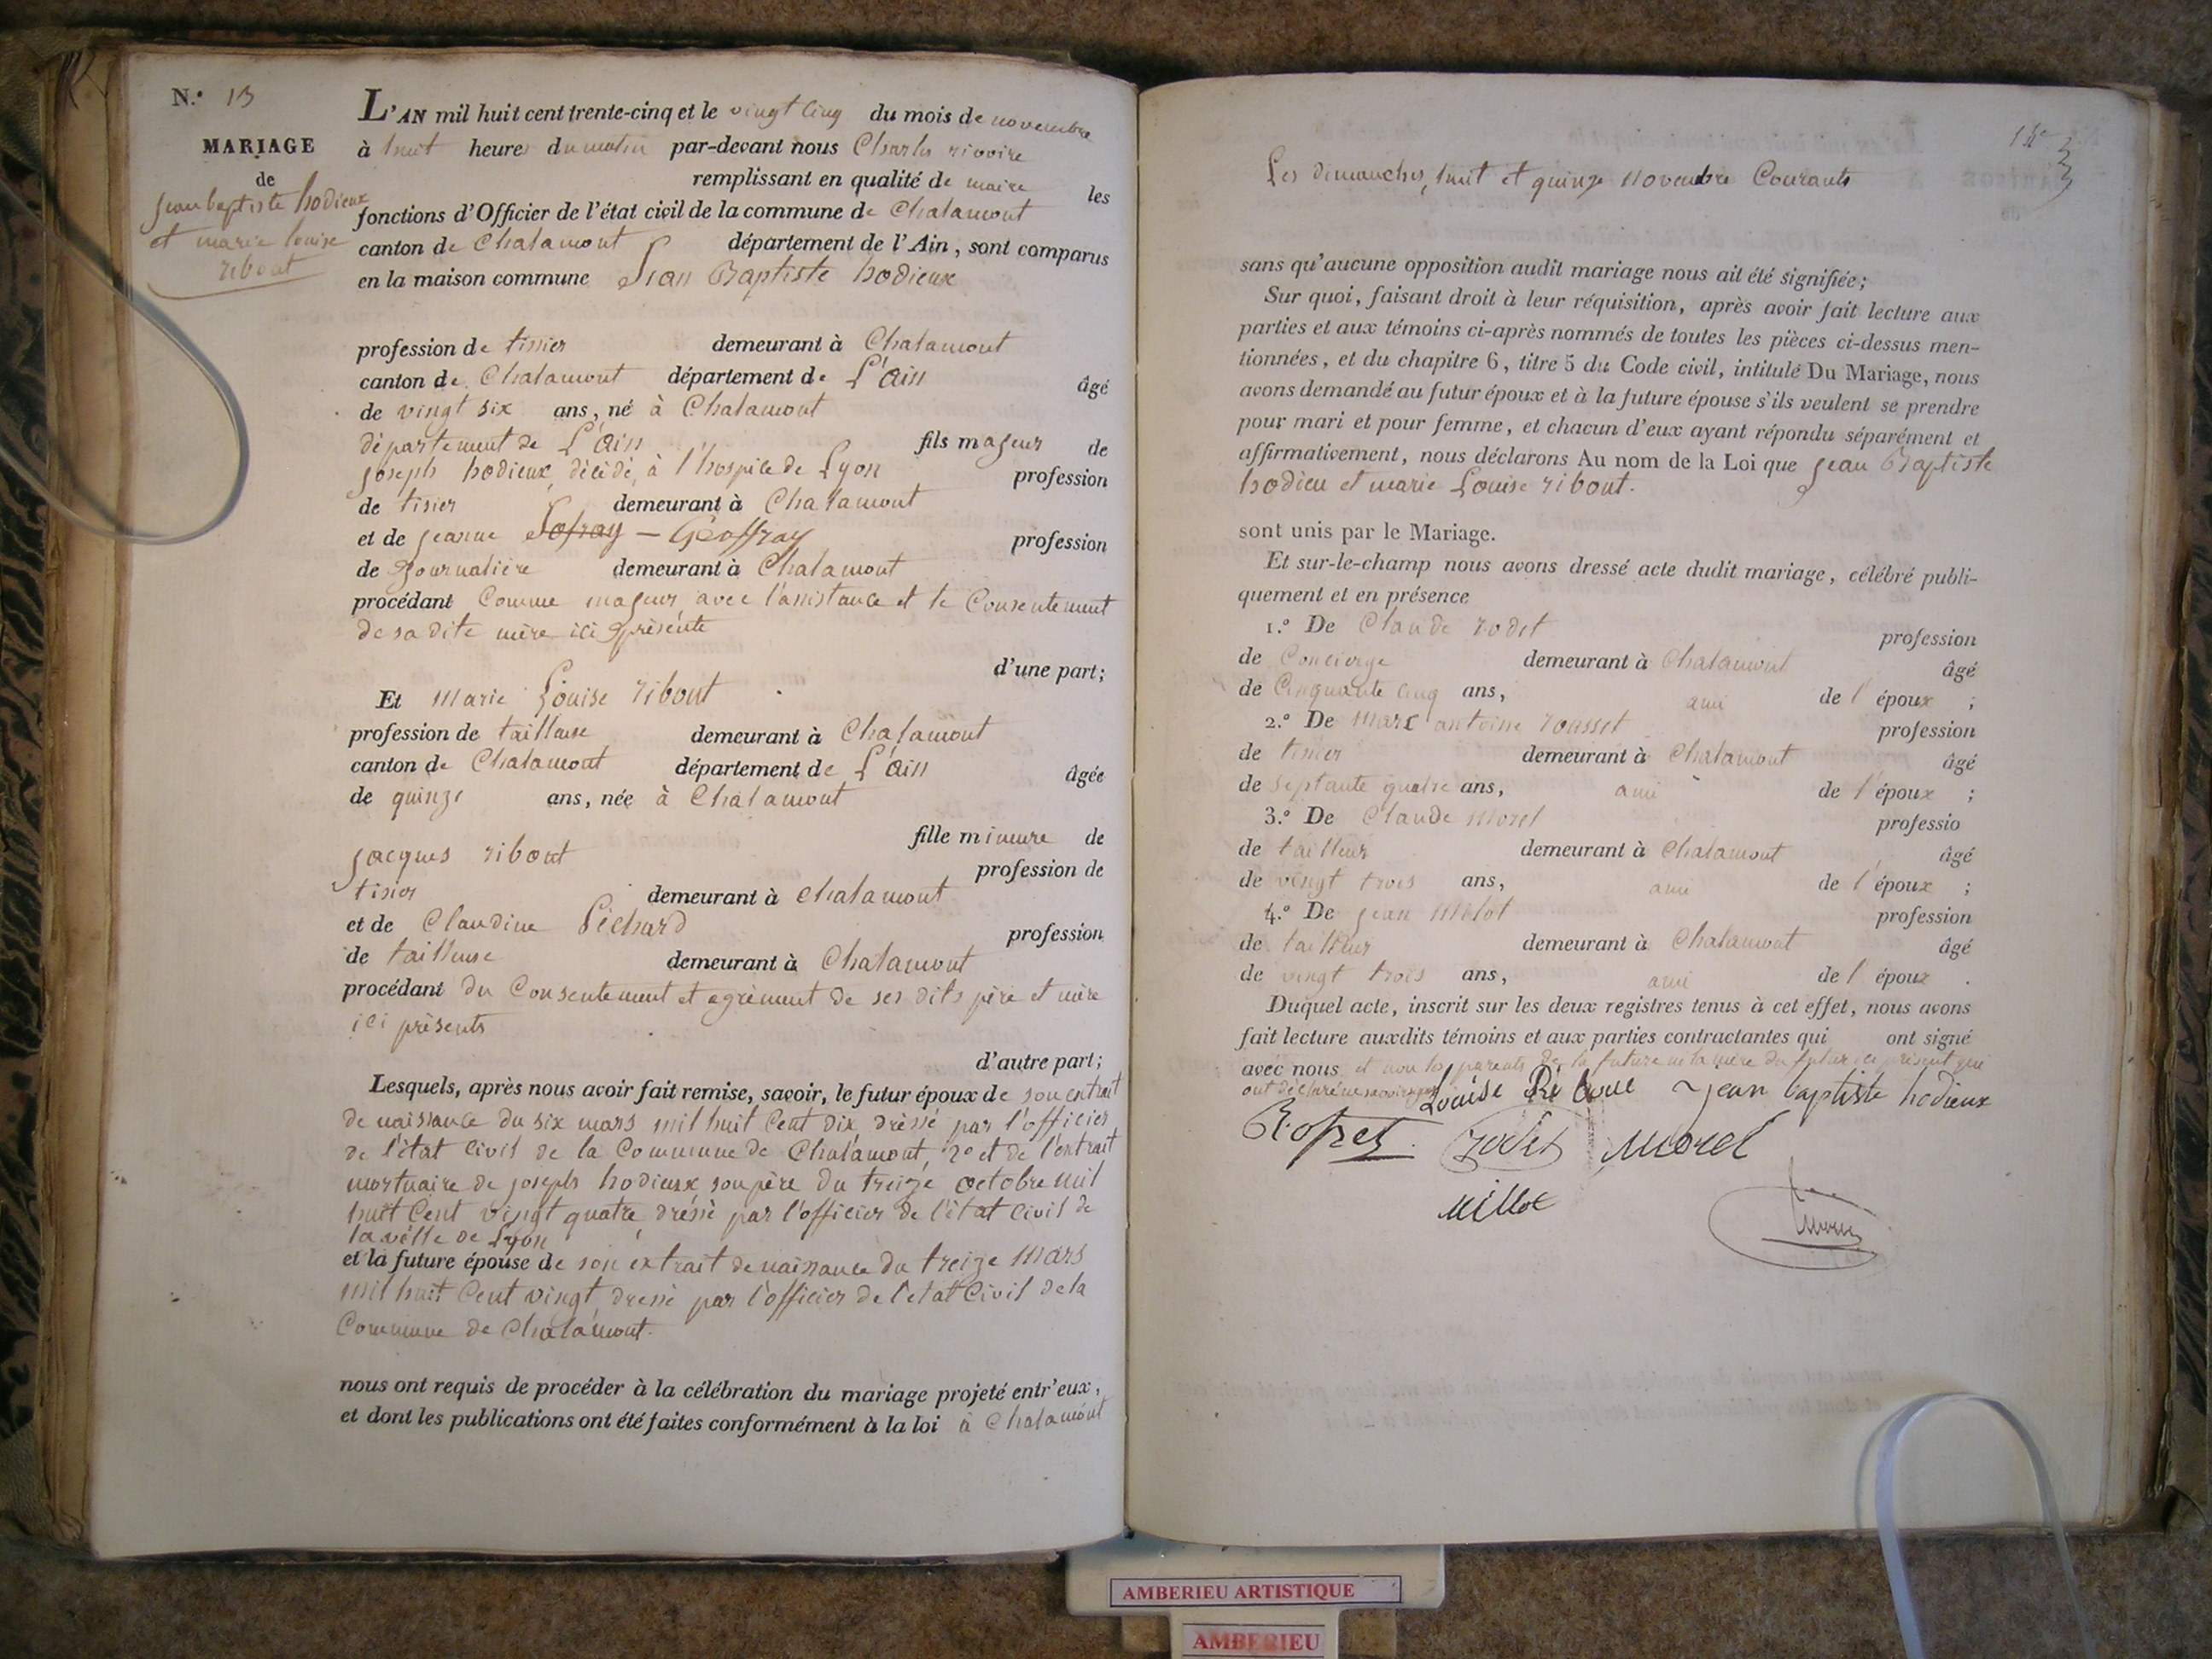 N.° 13
MARIAGE
de
jean baptiste hodieux
et marie louise
ribout
L'AN mil huit cent trente-cinq et le vingt cinq du mois de novembre
à huit heures du matin par-devant nous Charles rivoire
remplissant en qualité de maire les
fonctions d'Officier de l'état civil de la commune de Chalamont
canton de Chalamont département de l'Ain, sont comparus
en la maison commune Jean Baptiste hodieux
profession de tissier demeurant à Chalamont
canton de Chalamont département de L'ain âgé
de vingt six ans, né à Chalamont
département de L'ain fils majeur de
joseph hodieux, décidé, à l'hospice de Lyon profession
de tisier demeurant à Chalamont
et de jeanne Jofray – Géoffray profession
de journalière demeurant à Chalamont
procédant Comme majeur, avec l'assistance et le Consentement
de sa dite mère ici présente
d'une part;
Et Marie Louise ribout
profession de tailleuse demeurant à Chalamont
canton de Chalamont département de L'ain âgée
de quinze ans, née à Chalamont
fille mineure de
jacques ribout profession de
tisier demeurant à Chalamont
et de Claudine Péchard profession
de tailleuse demeurant à Chalamont
procédant du Consentement et agrément de ses dits père et mère
ici présents
d'autre part;
Lesquels, après nous avoir fait remise, savoir, le futur époux de son extrait
de naissance du six mars mil huit Cent dix, dréssé par l'officier
de l'état Civil de la Commune de Chalamont, 2° et de l'extrait
mortuaire de joseph hodieux son père du treize octobre mil
huit Cent vingt quatre, dréssé par l'officier de l'état Civil de
la ville de Lyon
et la future épouse de son extrait de naissance du treize Mars
mil huit Cent vingt, dressé par l'officier de l'état Civil de la
Commune de Chalamont.
nous ont requis de procéder à la célébration du mariage projeté entr'eux,
et dont les publications ont été faites conformément à la loi à Chalamont
14e
Les dimanches, huit et quinze Novembre Courants
sans qu'aucune opposition audit mariage nous ait été signifiée;
Sur quoi, faisant droit à leur réquisition, après avoir fait lecture aux
parties et aux témoins ci-après nommés de toutes les pièces ci-dessus men-
tionnées, et du chapitre 6, titre 5 du Code civil, intitulé Du Mariage, nous
avons demandé au futur époux et à la future épouse s'ils veulent se prendre
pour mari et pour femme, et chacun d'eux ayant répondu séparément et
affirmativement, nous déclarons Au nom de la Loi que jean Baptiste
hodieu et marie Louise ribout.
sont unis par le Mariage.
Et sur-le-champ nous avons dressé acte dudit mariage, célébré publi-
quement et en présence
1.° De Claude rodet profession
de Concierge demeurant à Chalamont âgé
de Cinquante cinq ans, ami de l'époux ;
2.° De Marc antoine rousset profession
de tisier demeurant à Chalamont âgé
de septante quatre ans, ami de l'époux ;
3.° De Claude Morel professio
de tailleur demeurant à Chalamont âgé
de vingt trois ans, ami de l'époux ;
4.° De jean Melot profession
de tailleur demeurant à Chalamont âgé
de vingt trois ans, ami de l'époux .
Duquel acte, inscrit sur les deux registres tenus à cet effet, nous avons
fait lecture auxdits témoins et aux parties contractantes qui ont signé
avec nous et non les parents de la future ni la mère du futur ici présent qui
ont déclaré ne savoir signer
Louise Riboue ~ jean baptiste hodieux
Rodet Morel
Millot
AMBERIEU ARTISTIQUE
AMBERIEU